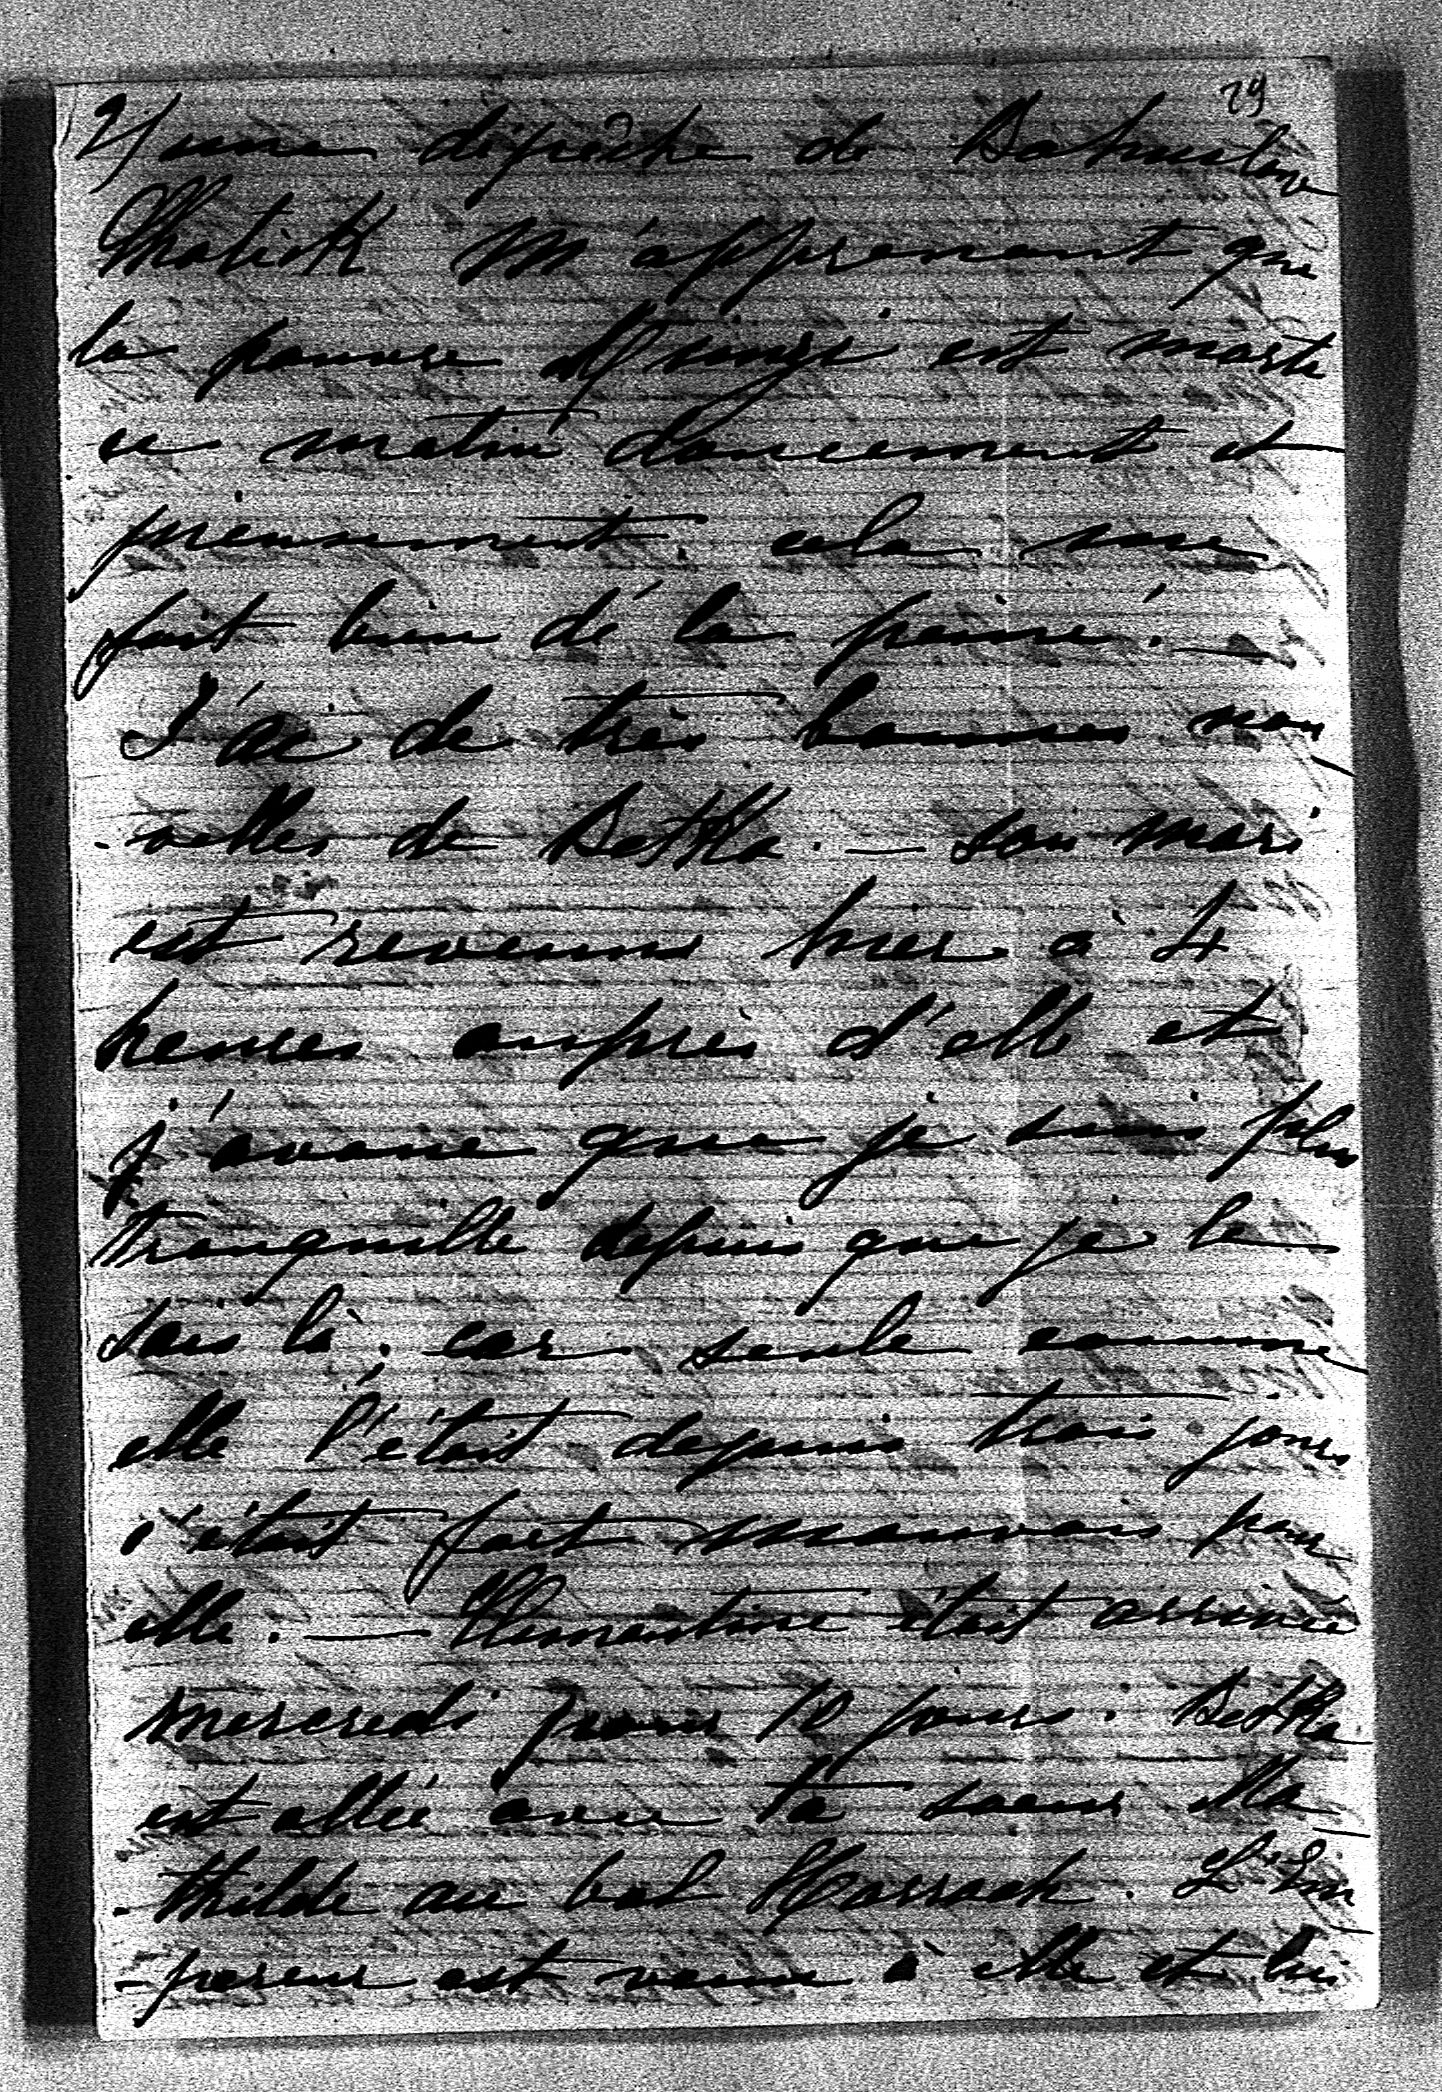 29
2/ une dépêche de
m'apprenant que
la pauvre est morte
ce matin doucement et
pieusement. cela me
fait bien de la peine. —
J'ai de très bonnes nou
-velles de Betka. — Son mari
est revenu hier à 4
heures auprès d'elle et
j'avoue que je suis plus
tranquille depuis que je le
sais là; car seule comme
elle l'était depuis trois jours
c'était fort mauvais pour
elle. — Clémentine était arrivée
mercredi pour 10 jours. Betka
est allée avec ta soeur Ma
-thilde au bal Harrach. L'Em
-pereur est venu à elle et lui